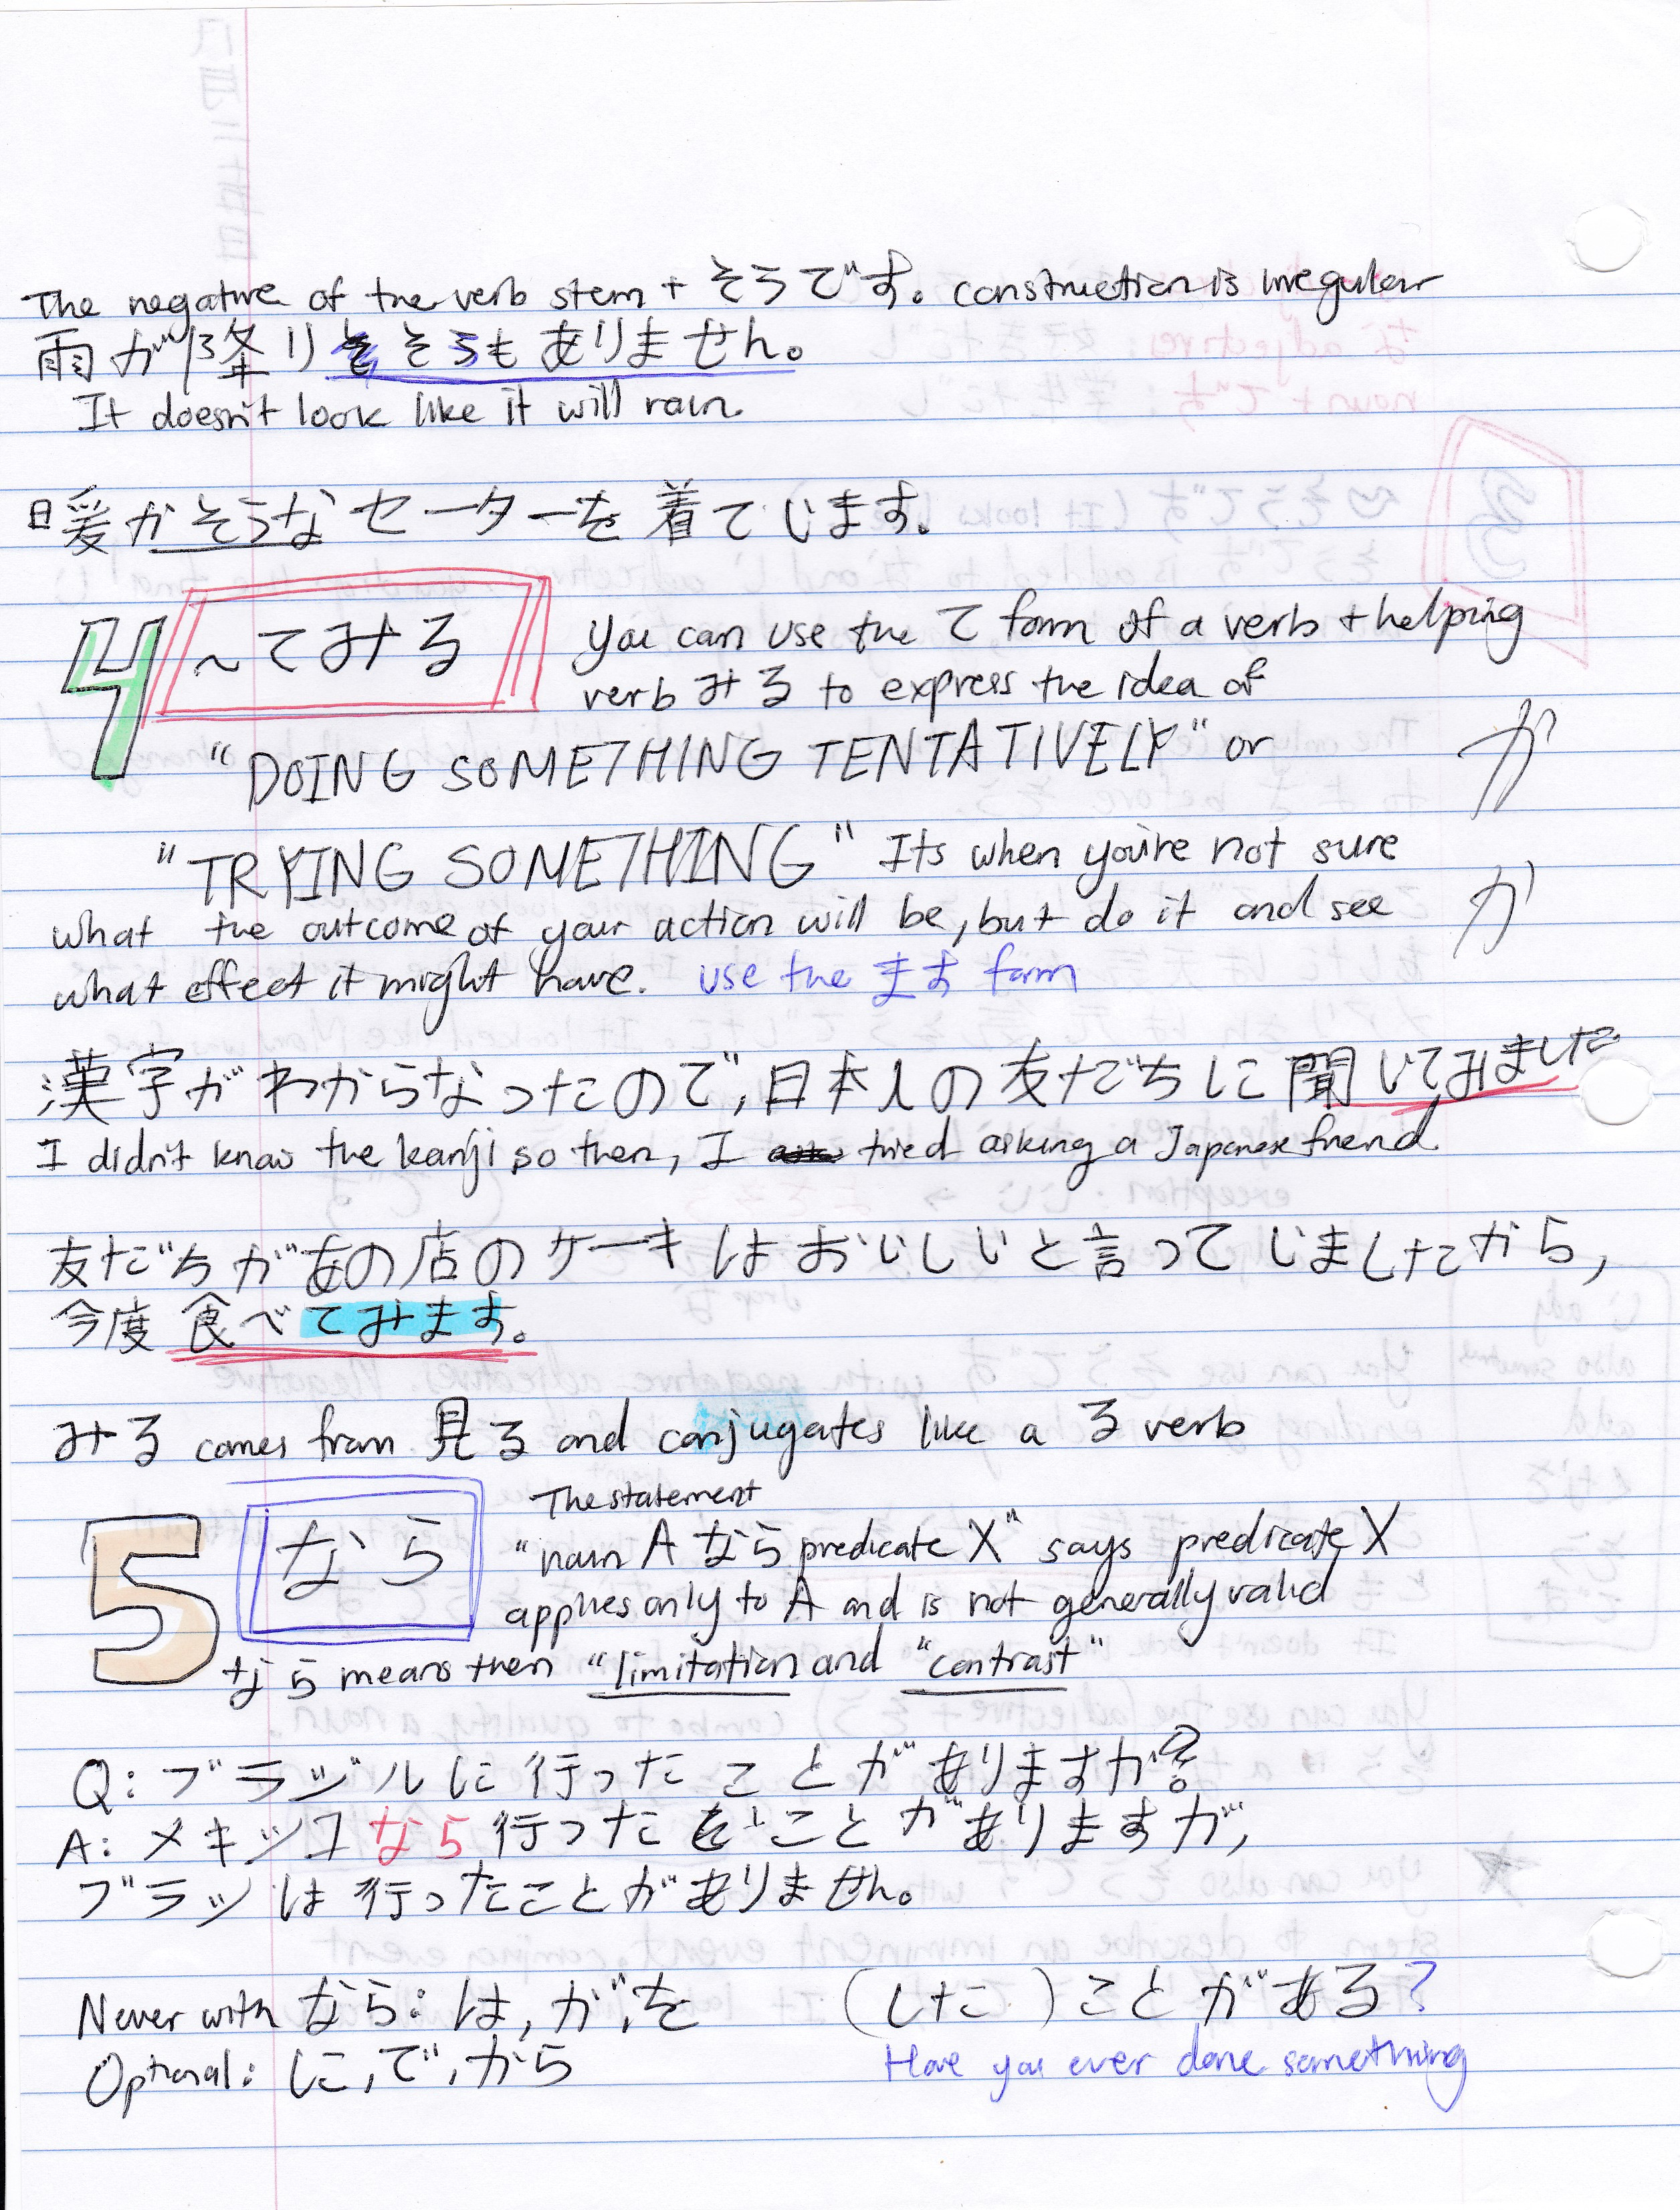 The negative of the verb stem + そうです。 construction is irregular
雨が降りそうもありません。
It doesn't look like it will rain.
暖かそうなセーターを着ています。
4 ~てみる You can use the て form of a verb + helping
verb みる to express the idea of
"DOING SOMETHING TENTATIVELY" or
か
"TRYING SOMETHING" Its when you're not sure
what the outcome of your action will be, but do it and see
か
what effect it might have. use the ます form
漢字がわからなったので, 日本人の友だちに聞いてみました
I didn't know the kanji so then, I tried asking a Japanese friend
友だちがあの店のケーキはおいしいと言っていましたから,
今度食べてみます。
みる comes from 見る and conjugates like a る verb
5 なら The statement
"noun A なら predicate X" says predicate X
applies only to A and is not generally valid
なら means then "limitation and "contrast"
Q: ブラジルに行ったことがありますか?
A: メキシコなら行ったことがありますが,
ブラジは行ったことがありません。
Never with なら: は, が, を
Optional: に, で, から
(した ) ことがある?
Have you ever done something